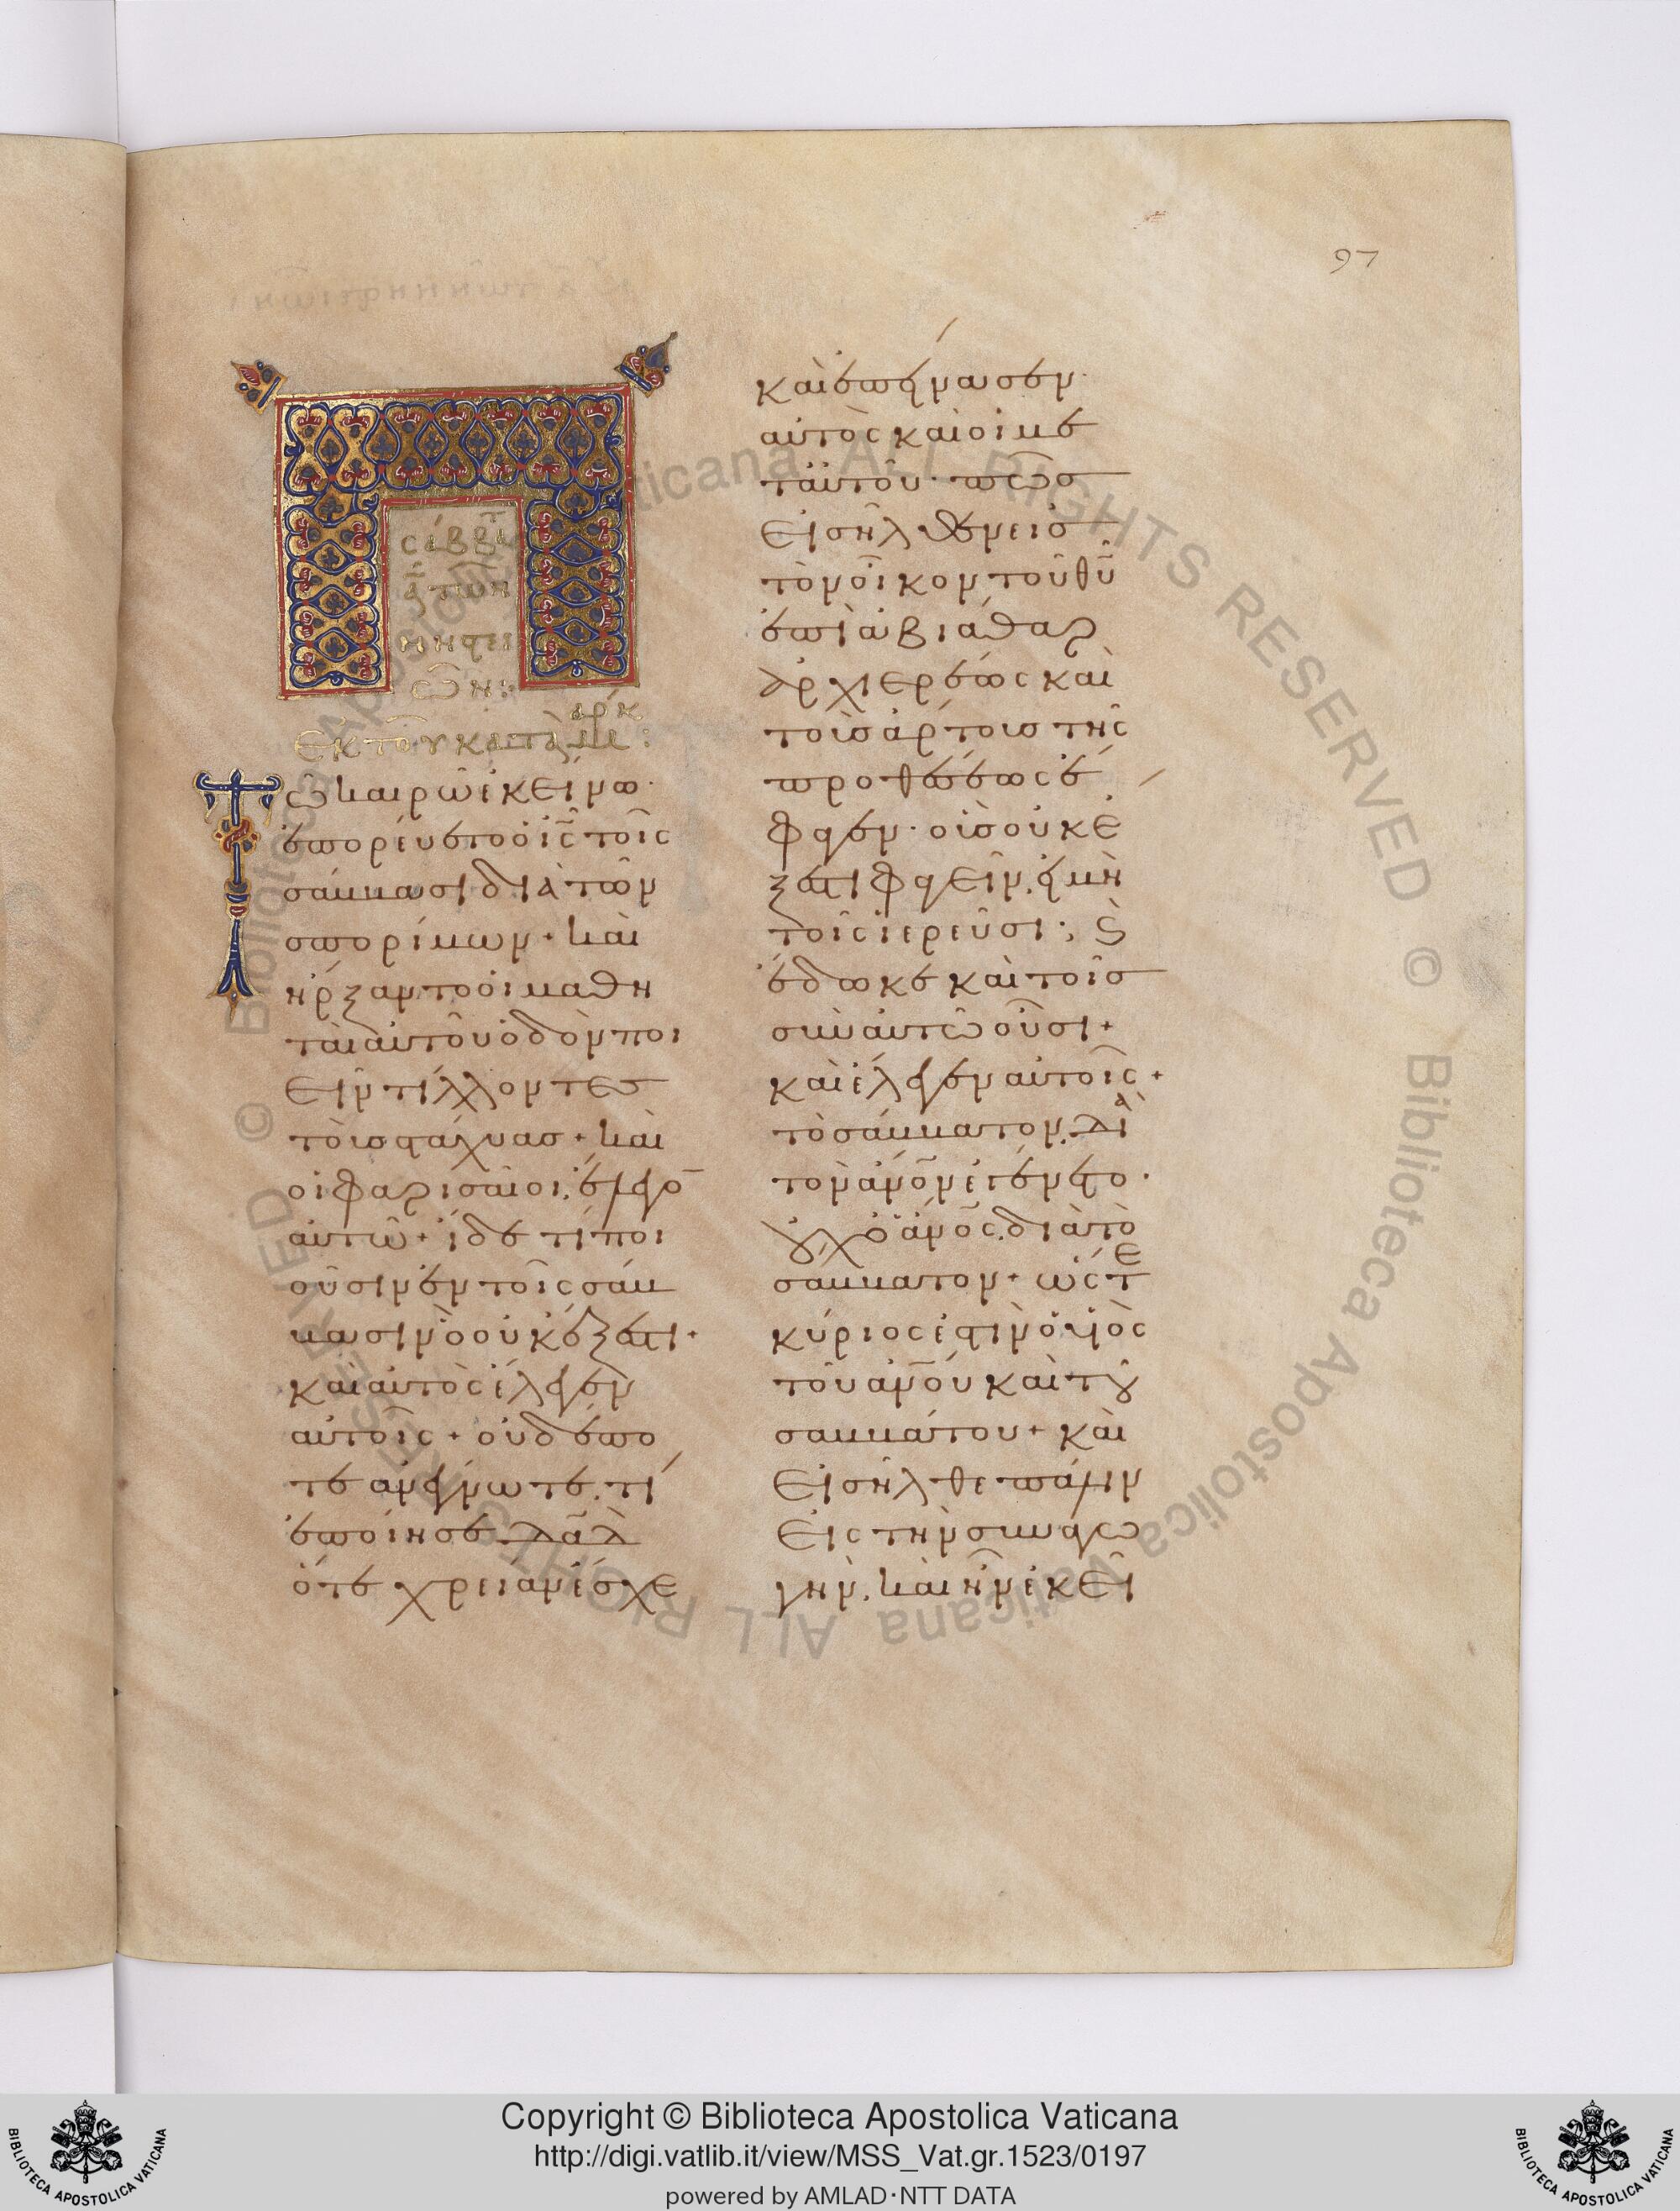 97
σάββα
ᾱ τῶν
νηστει
ῶν:
ἐκ τοῦ κατὰ μάρκ:
Τῶ καιρῶ ἐκείνω·
ἐπορεύετο ὁ ι̅ς̅ τοῖς
σάββασι διὰ τῶν
σπορίμων + καὶ
ἤρξαντο οἱ μαθη
ταὶ αὐτοῦ ὁδὸν ποι
εῖν τίλλοντες
τοὺς στάχυας + καὶ
οἱ φαρισαῖοι ἔλεγο̅
αὐτῶ + ἴδε τί ποι
οῦσιν ἐν τοῖς σάβ
βασιν ὃ οὐκ ἔξεστι +
καὶ αὐτὸς ἔλεγεν
αὐτοῖς + οὐδέπο
τε ἀνέγνωτε, τί
ἐποίησε δα̅δ̅
ὅτε χρείαν ἔσχε
καὶ ἐπείνασεν·
αὐτὸς καὶ οἱ με
τ αὐτοῦ· πῶς
εἰσῆλθεν εἰς
τὸν οἶκον τοῦ θ̅υ̅
ἐπὶ ἀβιάθαρ
ἀρχιερέως καὶ
τοὺς ἄρτους τῆς
προθέσεως ἔ
φαγεν· οὓς οὐκ ἔ
ξεστι φαγεῖν, εἰ μὴ
τοῖς ἱερεῦσι; ϗ
ἔδωκε καὶ τοῖς
σὺν αὐτῶ οὖσι +
καὶ ἔλεγεν αὐτοῖς +
τὸ σάββατον, διὰ
τὸν ἄν̅ο̅ν ἐγένετο·
οὐχ ὁ ἄν̅ο̅ς, διὰ τὸ
σάββατον + ὥστε
κύριός ἐστιν ὁ υἱὸς
τοῦ ἀν̅ο̅υ καὶ τοῦ
σαββάτου + καὶ
εἰσῆλθε πάλιν
εἰς τὴν συναγω
γήν, καὶ ἦν ἐκεῖ
Copyright © Biblioteca Apostolica Vaticana
http://digi.vatlib.it/view/MSS_Vat.gr.1523/0197
powered by AMLAD·NTT DATA
BIBLIOTECA APOSTOLICA VATICANA
BIBLIOTECA APOSTOLICA VATICANA
© Biblioteca Apostolica Vaticana ALL RIGHTS RESERVED © Biblioteca Apostolica Vaticana ALL RIGHTS RESERVED